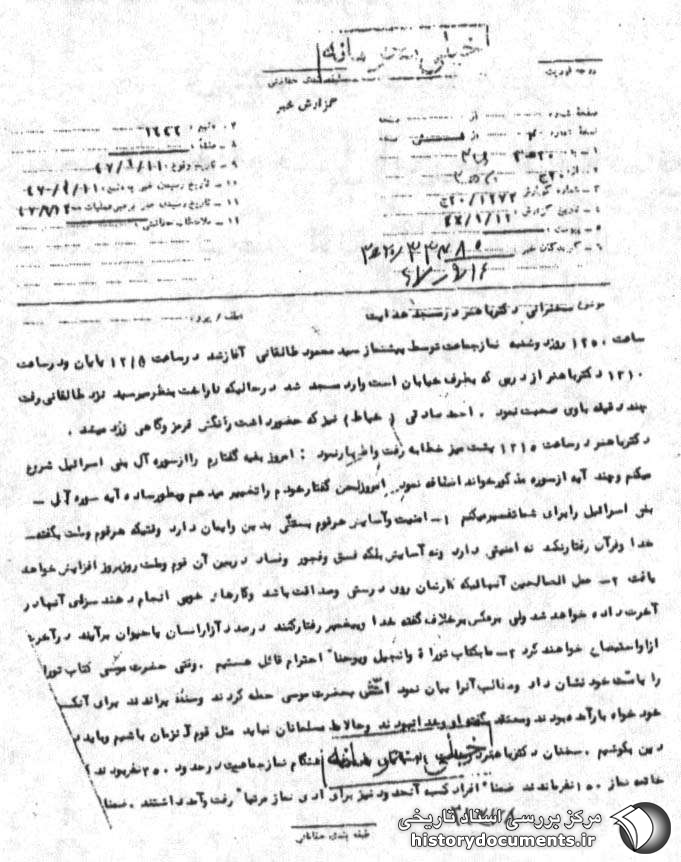 خیلی محرمانه
درجه فوریت
طبقه‌بندی حفاظتی
گزارش خبر
صفحه شماره از صفحه
نسخه شماره از نسخه
۱ - به
۲ - از
۳ - شماره گزارش ۲۰/۱۲۷۲ج
۴ - تاریخ گزارش
۵ - پیوست
۶ - گیرندگان خبر
۷ -
۸ - منشأ
۹ - تاریخ وقوع
۱۰ - تاریخ رسیدن خبر به منبع
۱۱ - تاریخ رسیدن خبر برهبر عملیات
۱۲ - ملاحظات حفاظتی
موضوع سخنرانی دکتر باهنر در مسجد هدایت
عطف / پیرو
ساعت ۱۲۵۰ روز دوشنبه نماز جماعت توسط پیشنماز سید محمود طالقانی آغاز شد در ساعت ۱۲/۵ پایان و در ساعت
۱۲۱۰ دکتر باهنر از دربی که بطرف خیابان است وارد مسجد شد در حالیکه ناراحت بنظر میرسید نزد طالقانی رفت
چند دقیقه باوی صحبت نمود . احمد صادقی ( خیاط ) نیز که حضور داشت رنگش قرمز و گاهی زرد میشد .
دکتر باهنر در ساعت ۱۲۱۵ پشت میز خطابه رفت و اظهار نمود : امروز بقیه گفتارم را از سوره آل بنی اسرائیل شروع
میکنم و چند آیه از سوره مذکور خواند اضافه نمود امروز لحن گفتار خودم را تغییر میدهم و بطور ساده آیه سوره آل -
بنی اسرائیل را برای شما تفسیر میکنم ۱- امنیت و آسایش هر قوم بستگی بدین و ایمان دارد وقتیکه هر قوم و ملت بگفته
خدا و قرآن رفتار نکند نه امنیتی دارد و نه آسایش بلکه فسق و فجور و فساد در بین آن قوم و ملت روز بروز افزایش خواهد
یافت ۲- عمل الصالحین آنهائیکه کارشان روی درستی و صداقت باشد و کارهای خوبی انجام دهند سزای آنها در
آخرت داده خواهد شد ولی برعکس برخلاف گفته خدا و پیغمبر رفتار کنند درصدد آزار انسان یا حیوان برآیند در آخرت
از او استیضاح خواهند کرد ۳- ما بکتاب توراة و انجیل و یوحنا" احترام قائل هستیم . وقتی حضرت موسی کتاب تورا
را بامت خود نشان داد و مطالب آنرا بیان نمود امتش بحضرت موسی حمله کردند و سنگ پراندند برای آنکه
خود خواه بار آمده بودند و معتقد بگفته او و خدا نبودند و حالا ما مسلمانان نباید مثل قوم آنزمان باشیم و باید در
دین بکوشیم . سخنان دکتر باهنر هنگام نماز جماعت در حدود ۳۵۰ نفر بودند
خاتمه نماز ۱۵۰ نفر ماندند ضمنا" افراد کسبه آنحدود نیز برای ادای نماز مرتبا" رفت و آمد داشتند . ضمنا
خیلی محرمانه
طبقه بندی حفاظتی
مرکز بررسی اسناد تاریخی
historydocuments.ir